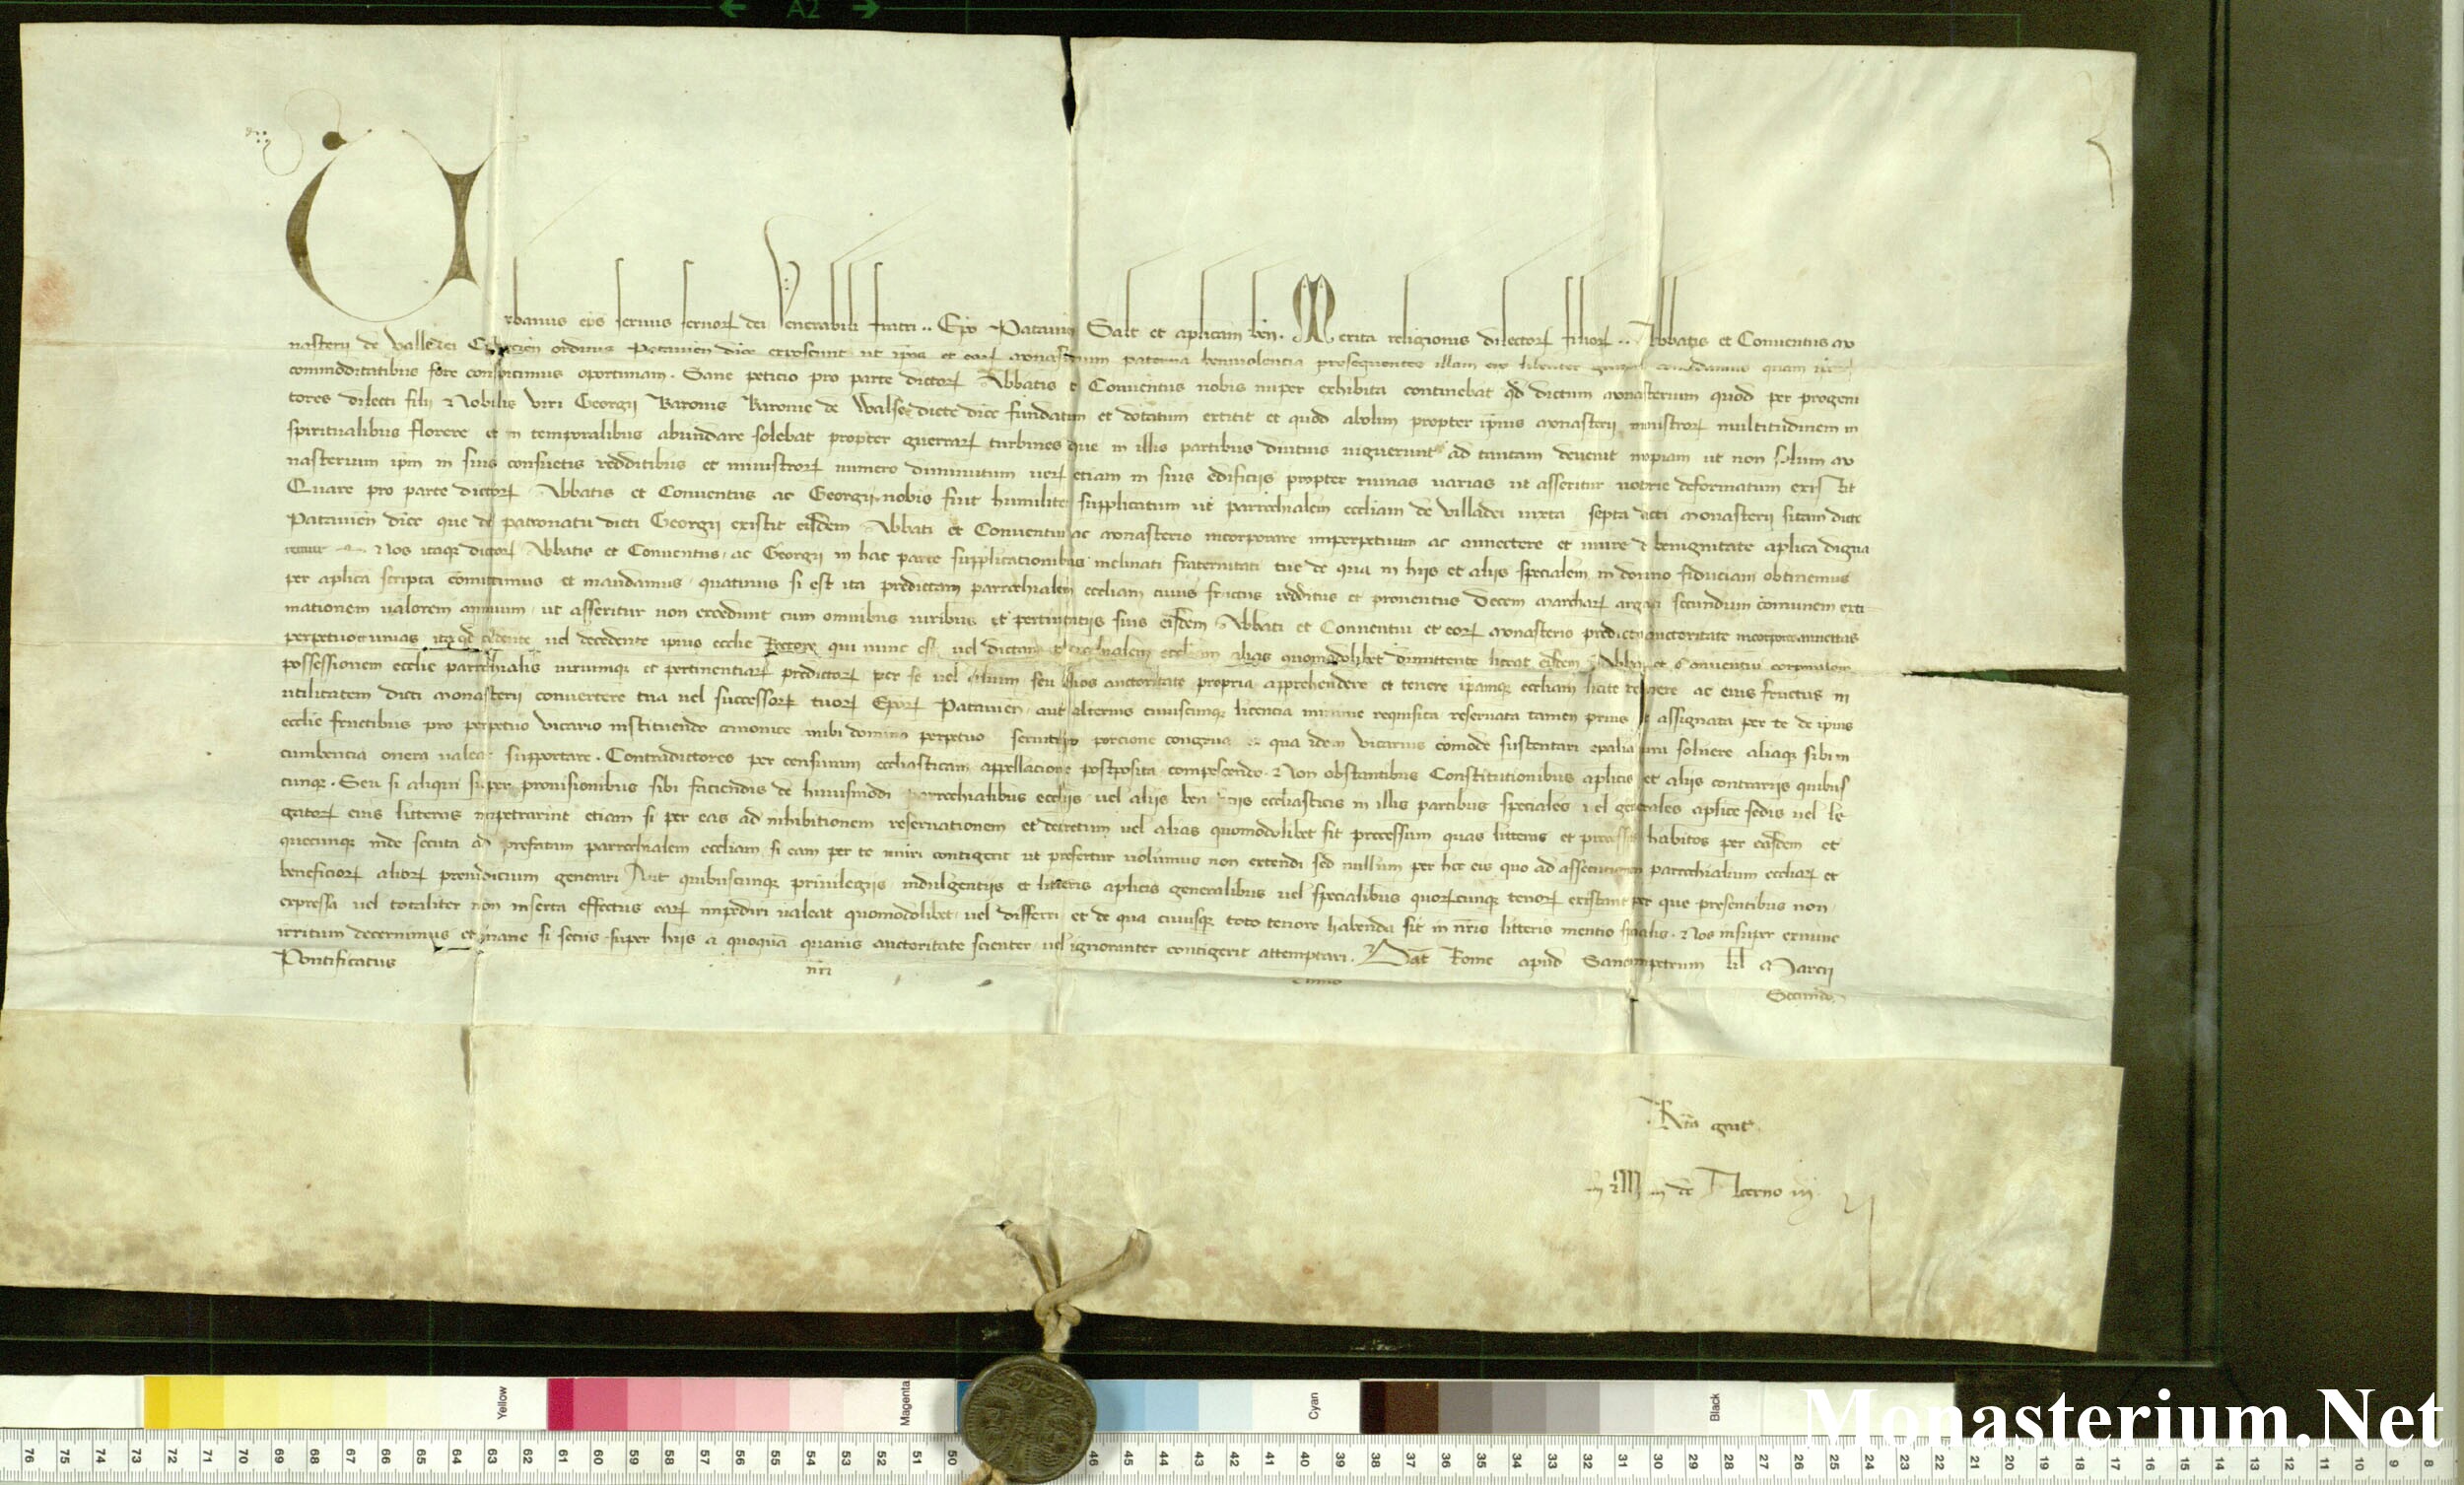 A2
Urbanus ep̄s seruus seruoꝝ dei Venerabili fratri .. Ep̄o Patauieñ Salt̄ et ap̄licam beñ. Merita religionis dilectoꝝ filioꝝ .. Abbatis et Conuentus mo
nasterij de Valledei ordinis Patauieñ dioc̄ exposcunt ut ip̄os et eoꝝ monasterium paterna beniuolentia prosequentes illam eis libenter concedamus quam
commoditatibus fore conspicimus oportunam. Sane peticio pro parte dictoꝝ Abbatis et Conuentus nobis nuper exhibita continebat qd̄ dictum monasterium quod per progeni
tores dilecti filij Nobilis viri Georgij Baronis Baronie de Walse dicte dioc̄ fundatum et dotatum extitit et quod abolim propter ipius monasterij ministroꝝ multitudinem in
spiritualibus florere et in temporalibus abundare solebat propter guerraꝝ turbines que in illis partibus diutius uiguerunt ad tantam deuenit inopiam ut non solum mo
nasterium ipm̄ in suis consuetis redditibus et ministroꝝ numero diminutum ueꝝ etiam in suis edificijs propter ruinas uarias ut asseritur notorie deformatum existit
Quare pro parte dictoꝝ Abbatis et Conuentus ac Georgij nobis fuit humiliter supplicatum ut parrochialem eccl̄iam de Villadei iuxta septa dicti monasterij sitam dicte
Patauieñ dioc̄ que de patronatu dicti Georgij existit eisdem Abbati et Conuentui ac monasterio incorporare imperpetuum ac annectere et unire de benignitate ap̄lica digna
remur Nos itaqꝫ dictoꝝ Abbatis et Conuentus ac Georgij in hac parte supplicationibus inclinati fraternitati tue de qua in hijs et alijs specialem in domino fiduciam obtinemus
per ap̄lica scripta comittimus et mandamus quatinus si est ita predictam parrochialem eccl̄iam cuius fructus redditus et prouentus decem marchaꝝ argenti secundum comunem exti
mationem ualorem annuum ut asseritur non excedunt cum omnibus iuribus et pertinentijs suis eisdem Abbati et Conuentui et eoꝝ monasterio predicto auctoritate incorpores annectas
perpetuo et unias ita qd̄ cedente uel decedente ipius eccl̄ie Rectore qui nunc est uel dictam parrochialem eccl̄iam alias quomodolibet dimittente liceat eisdem Abbati et Conuentui corporalem
possessionem eccl̄ie parrochialis iuriumqꝫ et pertinentiaꝝ predictoꝝ per se uel alium seu alios auctoritate propria apprehendere et tenere ipamqꝫ eccl̄iam licite retinere ac eius fructus in
utilitatem dicti monasterij conuertere tua uel successoꝝ tuoꝝ Ep̄oꝝ Patauieñ aut alterius cuiuscunqꝫ licencia minime requisita reseruata tamen prius et assignata per te de ipius
eccl̄ie fructibus pro perpetuo vicario instituendo canonice inibi domino perpetuo seruituro porcione congrua ex qua idem vicarius comode sustentari ep̄alia iura soluere aliaqꝫ sibi in
cumbencia onera ualeat supportare. Contradictores per censuram eccl̄iasticam appellacione postposita compescendo. Non obstantibus Constitutionibus ap̄licis et alijs contrarijs quibus
cunqꝫ. Seu si aliqui super prouisionibus sibi faciendis de huiusmodi parrochialibus eccl̄ijs uel alijs beneficijs eccl̄iasticis in illis partibus speciales uel generales ap̄lice sedis uel le
gatoꝝ eius litteras impetrarint etiam si per eas ad inhibitionem reseruationem et decretum uel alias quomodolibet sit processum quas litteras et processus habitos per easdem et
quecunqꝫ inde secuta ad prefatam parrochialem eccl̄iam si eam per te uniri contigerit ut prefertur uolumus non extendi sed nullum per hoc eis quo ad assecutionem parrochialium eccl̄iaꝝ et
beneficioꝝ alioꝝ preiudicium generari Aut quibuscunqꝫ priuilegijs indulgentijs et litteris ap̄licis generalibus uel specialibus quoꝝcunqꝫ tenoꝝ existant per que presentibus non
expressa uel totaliter non inserta effectus eaꝝ impediri ualeat quomodolibet uel differri et de qua cuiusqꝫ toto tenore habenda sit in nr̄is litteris mentio sp̄ialis. Nos insuper exnunc
irritum decernimus et inane si secus super hijs a quoquā quauis auctoritate scienter uel ignoranter contigerit attemptari. Dat̄ Rome apud Sanctumpetrum kl̄ Marcij
Pontificatus nr̄i Anno Secundo
Rta grat̄
de
Yellow Magenta Cyan Black
76 75 74 73 72 71 70 69 68 67 66 65 64 63 62 61 60 59 58 57 56 55 54 53 52 51 50 46 45 44 43 42 41 40 39 38 37 36 35 34 33 32 31 30 29 28 27 26 25 24 23 22 21 20 19 18 17 16 15 14 13 12 11 10 9 8
Monasterium.Net